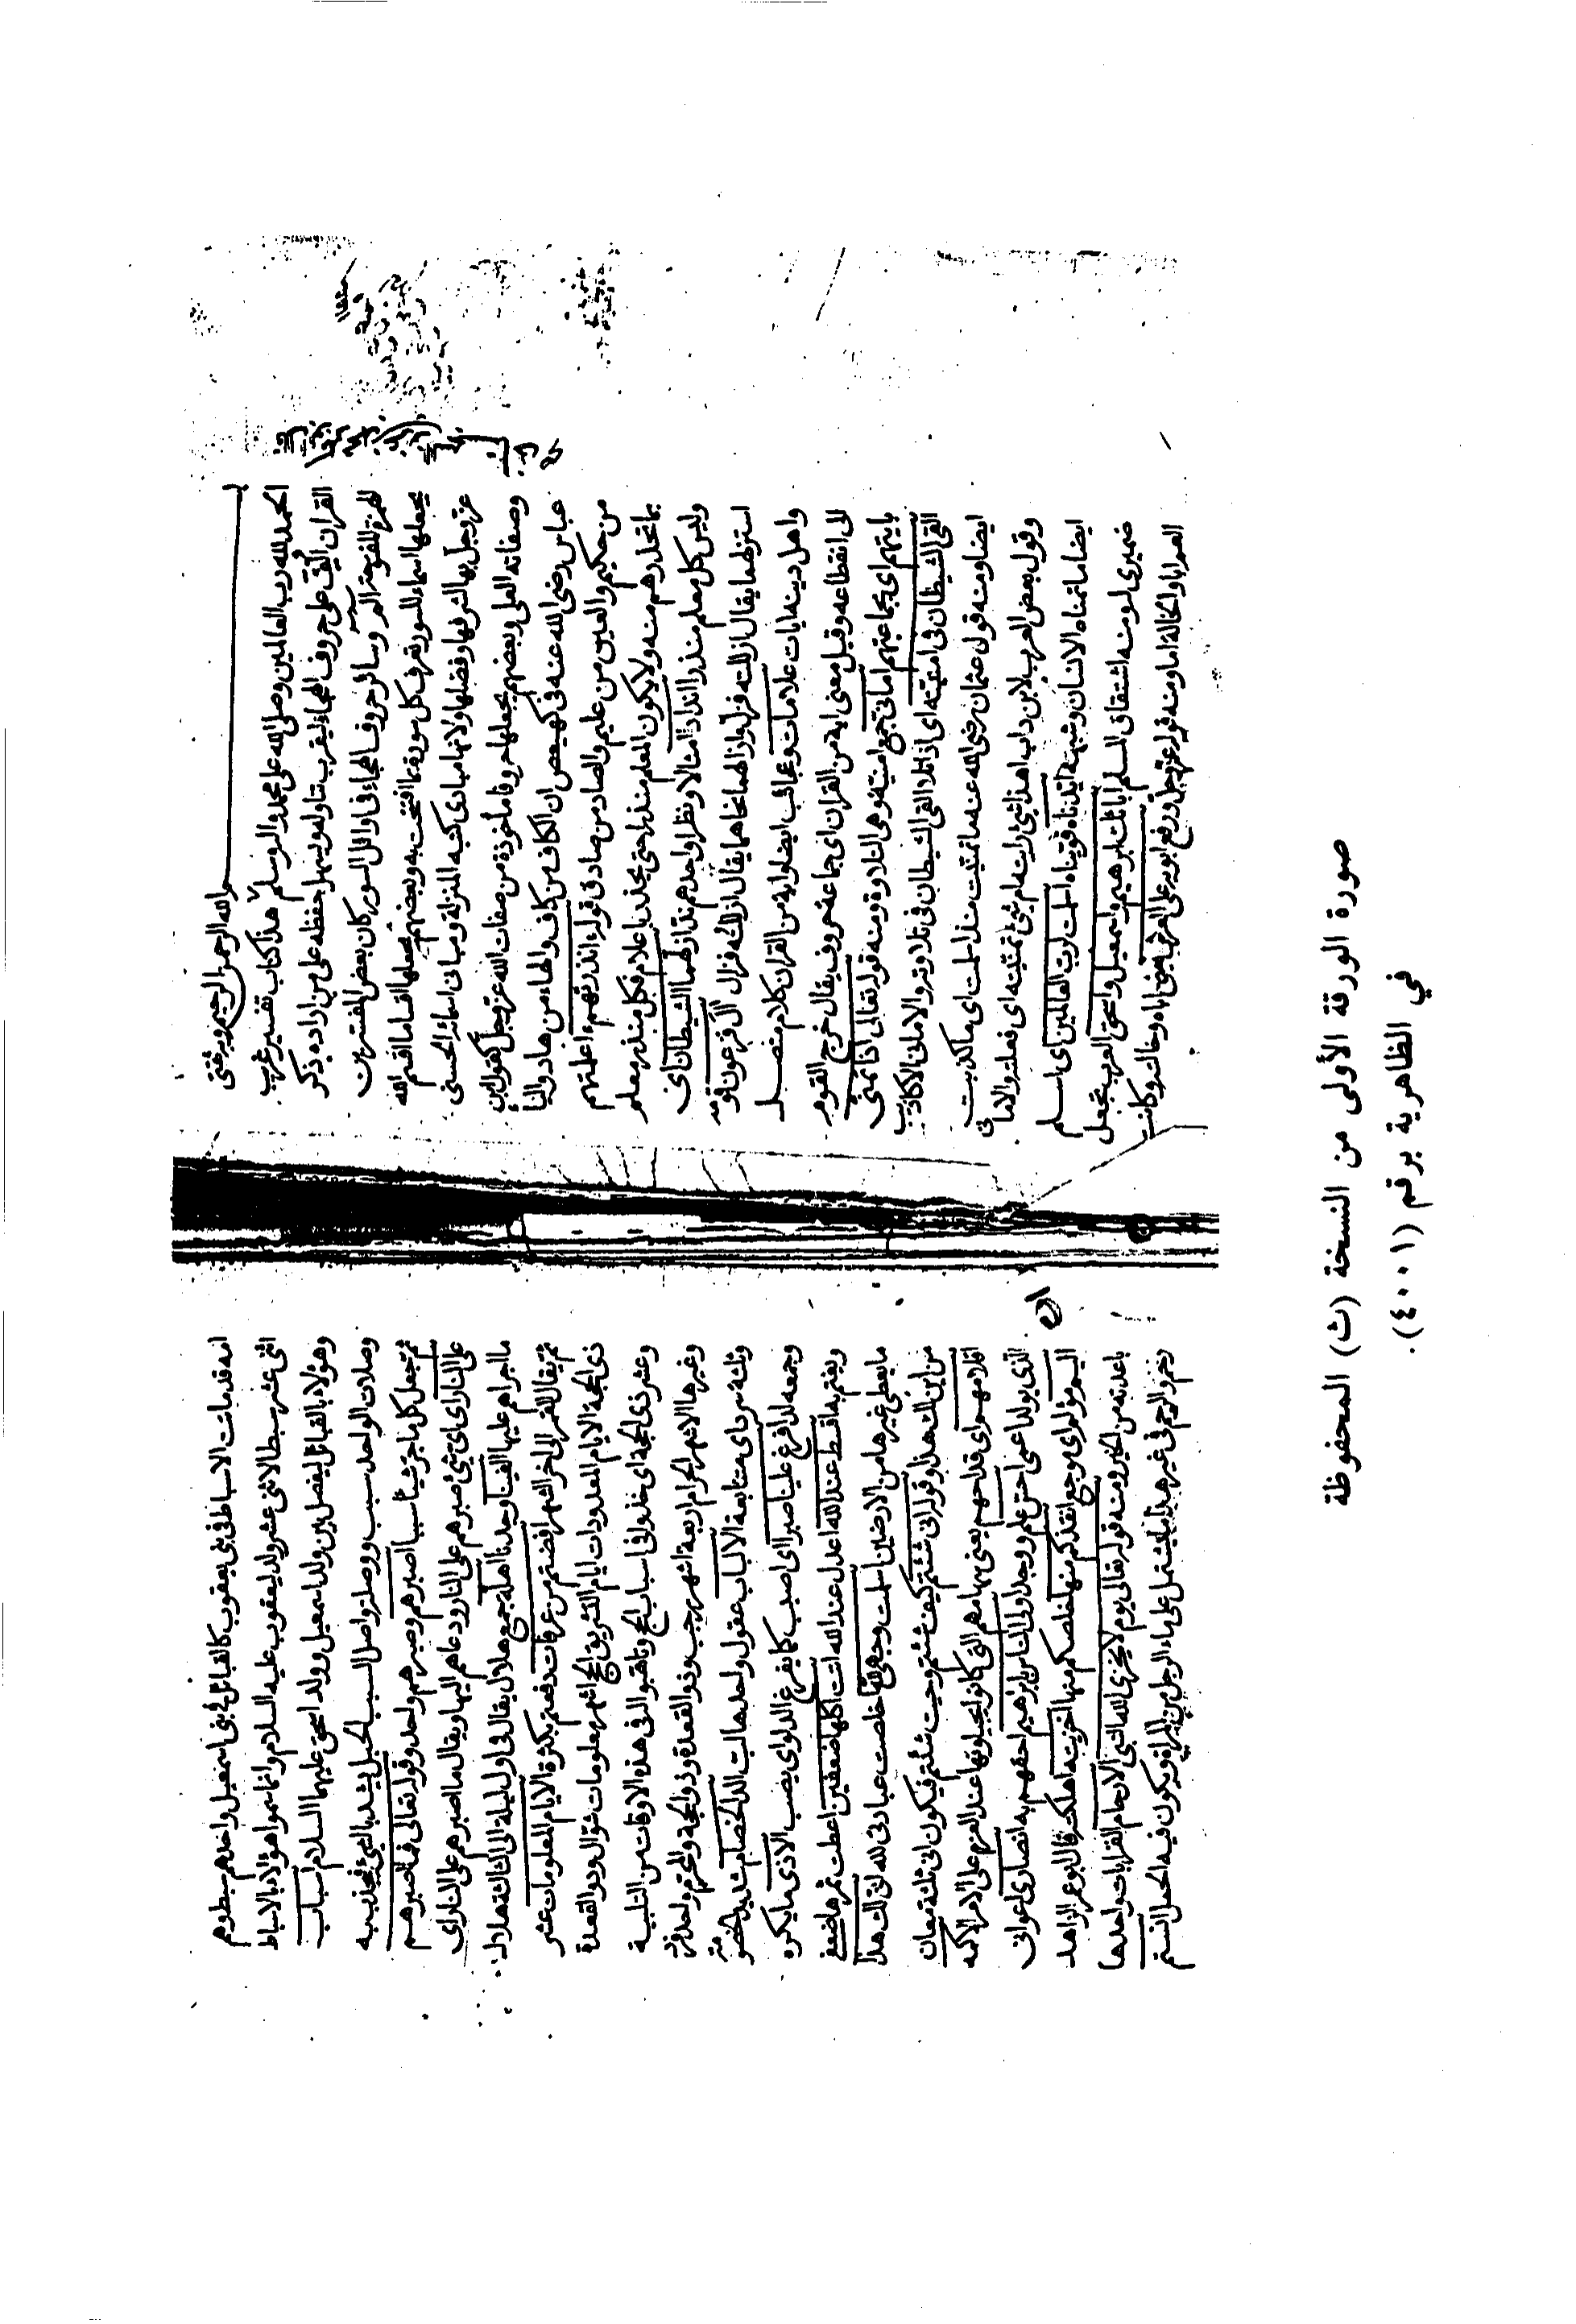 بسم الله الرحمن الرحيم وبه ثقتي
الحمد لله رب العالمين وصلى الله على محمد واله وسلم هذا كتاب تفسير غريب
القران ألّف على حروف الهجاء ليقرب تناوله ويسهل حفظه على من اراده ذكر
الهمزة المفتوحة الم وسائر حروف الهجاء في اوائل السور كان بعض المفسرين
يجعلها اسماء للسور تعرف كل سورة بما افتتحت به وبعضهم يجعلها اقساما اقسم الله
عز وجل بها لشرفها وفضلها ولانها مبادى كتبه المنزلة ومباني اسمائه الحسنى
وصفاته العلى وبعضهم يجعلها حروفا مأخوذة من صفات الله عز وجل كقول ابن
عباس رضي الله عنه في كهيعص ان الكاف من كاف والهاء من هاد واليا
من حكيم والعين من عليم والصاد من صادق قوله ءانذرتهم ءاعلمتهم
بما تحذرهم منه ولا يكون المعلم منذرا حتى يحذر باعلامه فكل منذر معلم
وليس كل معلم منذرا اندادا امثالا ونظرا واحدهم ند ازلهما الشيطان اى
استزلهما يقال ازللته فزل وازالهما نحاهما يقال ازلته فزال آل فرعون قومه
واهل دينه ايات علامات وعجائب ايضا واية من القران كلام متصل
الى انقطاعه وقيل معنى اية من القران اى جماعة حروف يقال خرج القوم
بايتهم اى بجماعتهم اماني جمع امنية وهي التلاوة ومنه قوله تعالى اذا تمنى
القى الشيطان في امنيته اى اذا تلا القى الشيطان في تلاوته والاماني الاكاذيب
ايضا ومنه قول عثمان رضي الله عنه ما تمنيت منذ اسلمت اى ما كذبت
وقول بعض العرب لابن داب اهذا شئ رايته ام شئ تمنيته اى فعلته والاماني
ايضا ما تمناه الانسان وشبهه ايدناه قويناه اسلمت لرب العالمين اى سلم
ضميري له ومنه اشتقاق المسلم ابائك ابرهيم واسمعيل واسحق العرب تجعل
العم ابا والخالة اما ومنه قوله عز وجل ورفع ابويه على العرش يعني اباه وخالته وكانت
امه قد ماتت الاسباط في بني يعقوب كالقبائل في بني اسمعيل واحدهم سبط وهم
اثنى عشر سبطا لاثنى عشر ولد يعقوب عليه السلام وانما سموا هؤلاء بالاسباط
وهؤلاء بالقبائل ليفصل بين ولد اسمعيل وولد اسحق عليهما السلام اسباب
وصلات الواحد سبب ووصلة واصل السبب الحبل يشد بالشئ فيجذبه
ثم جعل كل ما جر شيئا سببا اصبرهم وصبرهم واحد وقوله تعالى فما اصبرهم
على النار اى اى شئ صبرهم على النار ودعاهم اليها ويقال ما اصبرهم على النار اى
ما اجراهم عليها الفينا وجدنا اهلة جمع هلال يقال في اول ليلة الى الثالثة هلال
ثم يقال القمر الى اخر الشهر افضتم من عرفات دفعتم بكثرة الايام المعلومات عشر
ذي الحجة الايام المعدودات ايام التشريق الحج اشهر معلومات شوال وذو القعدة
وعشر ذي الحجة اى خذوا في اسباب الحج وتاهبوا له في هذه الاوقات من التلبية
وغيرها الاشهر الحرام اربعة اشهر رجب وذو القعدة وذو الحجة والمحرم واحد فرد
وثلثة سرد اى متتابعة الالباب عقول واحدها لب الد الخصام شديد الخصومة
وجمعه لد افرغ علينا صبرا اى اصبب كما يفرغ الدلو اى يصب الاذى ما يكره
ويغتم به اقسط عند الله اعدل عند الله اتت اكلها ضعفين اعطت ثمرها ضعفي
ما يعطي غيرها من الارضين اسلمت وجهي لله اخلصت عبادتي لله انى لك هذا
من اين لك هذا وقوله انى شئتم كيف شئتم وحيث شئتم فيكون انى ثلثة معان
اقلامهم اى قداحهم يعني سهامهم التي كانوا يجيلونها عند العزم على الامر الاكمه
الذي يولد اعمى احس علم ووجد اولى الناس بابرهيم احقهم به انصارى اعواني
اليم مؤلم اى موجع انقذكم منها خلصكم منها اخزيته اهلكته قال ابو عمر الزاهد
باعدته من الخير ومنه قوله تعالى يوم لا يخزى الله النبي الارحام القرابات واحدها
رحم والرحم في غير هذا ما يشتمل على ماء الرجل من المراة ويكون فيه الحمل انستم
صورة الورقة الأولى من النسخة (ث) المحفوظة
في الظاهرية برقم (٤٠٠١).